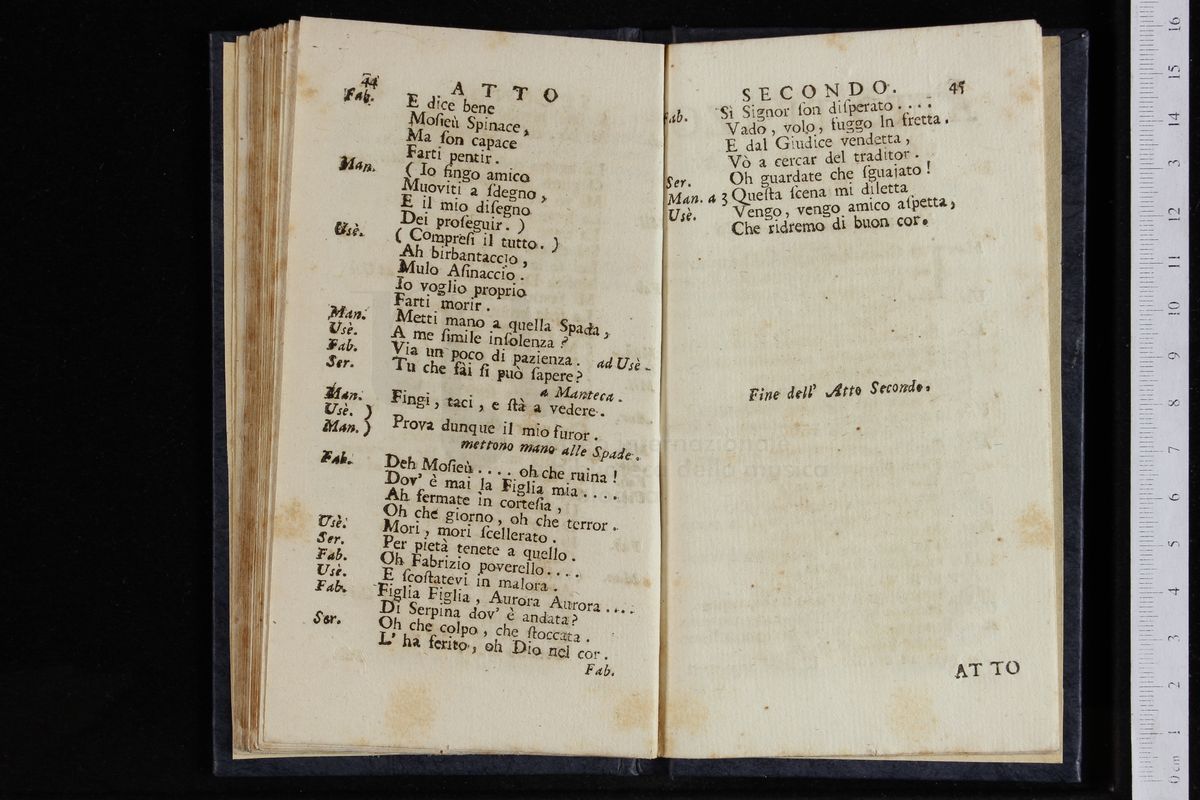 44
ATTO
Fab. E dice bene
Moſieù Spinace,
Ma ſon capace
Farti pentir.
Man. ( Io fingo amico
Muoviti a ſdegno,
E il mio diſegno
Dei proſeguir. )
Usè. ( Compreſi il tutto. )
Ah birbantaccio,
Mulo Aſinaccio.
Io voglio proprio
Farti morir.
Man. Metti mano a quella Spada,
Usè. A me ſimile inſolenza?
Fab. Via un poco di pazienza. ad Usè.
Ser. Tu che fai ſi può ſapere?
a Manteca.
Man. Fingi, taci, e ſtà a vedere.
Usè. )
Man. ) Prova dunque il mio furor.
mettono mano alle Spade.
Fab. Deh Moſieù .... oh che ruina!
Dov' è mai la Figlia mia ....
Ah fermate in corteſia,
Oh che giorno, oh che terror.
Usè. Mori, mori ſcellerato.
Ser. Per pietà tenete a quello.
Fab. Oh Fabrizio poverello....
Usè. E ſcoſtatevi in malora.
Fab. Figlia Figlia, Aurora Aurora ....
Di Serpina dov' è andata?
Ser. Oh che colpo, che ſtoccata.
L' ha ferito, oh Dio nel cor.
Fab.
SECONDO.
45
Fab. Sì Signor ſon diſperato ....
Vado, volo, fuggo In fretta.
E dal Giudice vendetta,
Vò a cercar del traditor.
Ser. Oh guardate che ſguajato!
Man. a 3 Queſta ſcena mi diletta
Usè. Vengo, vengo amico aſpetta,
Che ridremo di buon cor.
Fine dell' Atto Secondo.
ATTO
0 cm 1 2 3 4 5 6 7 8 9 10 11 12 13 14 15 16